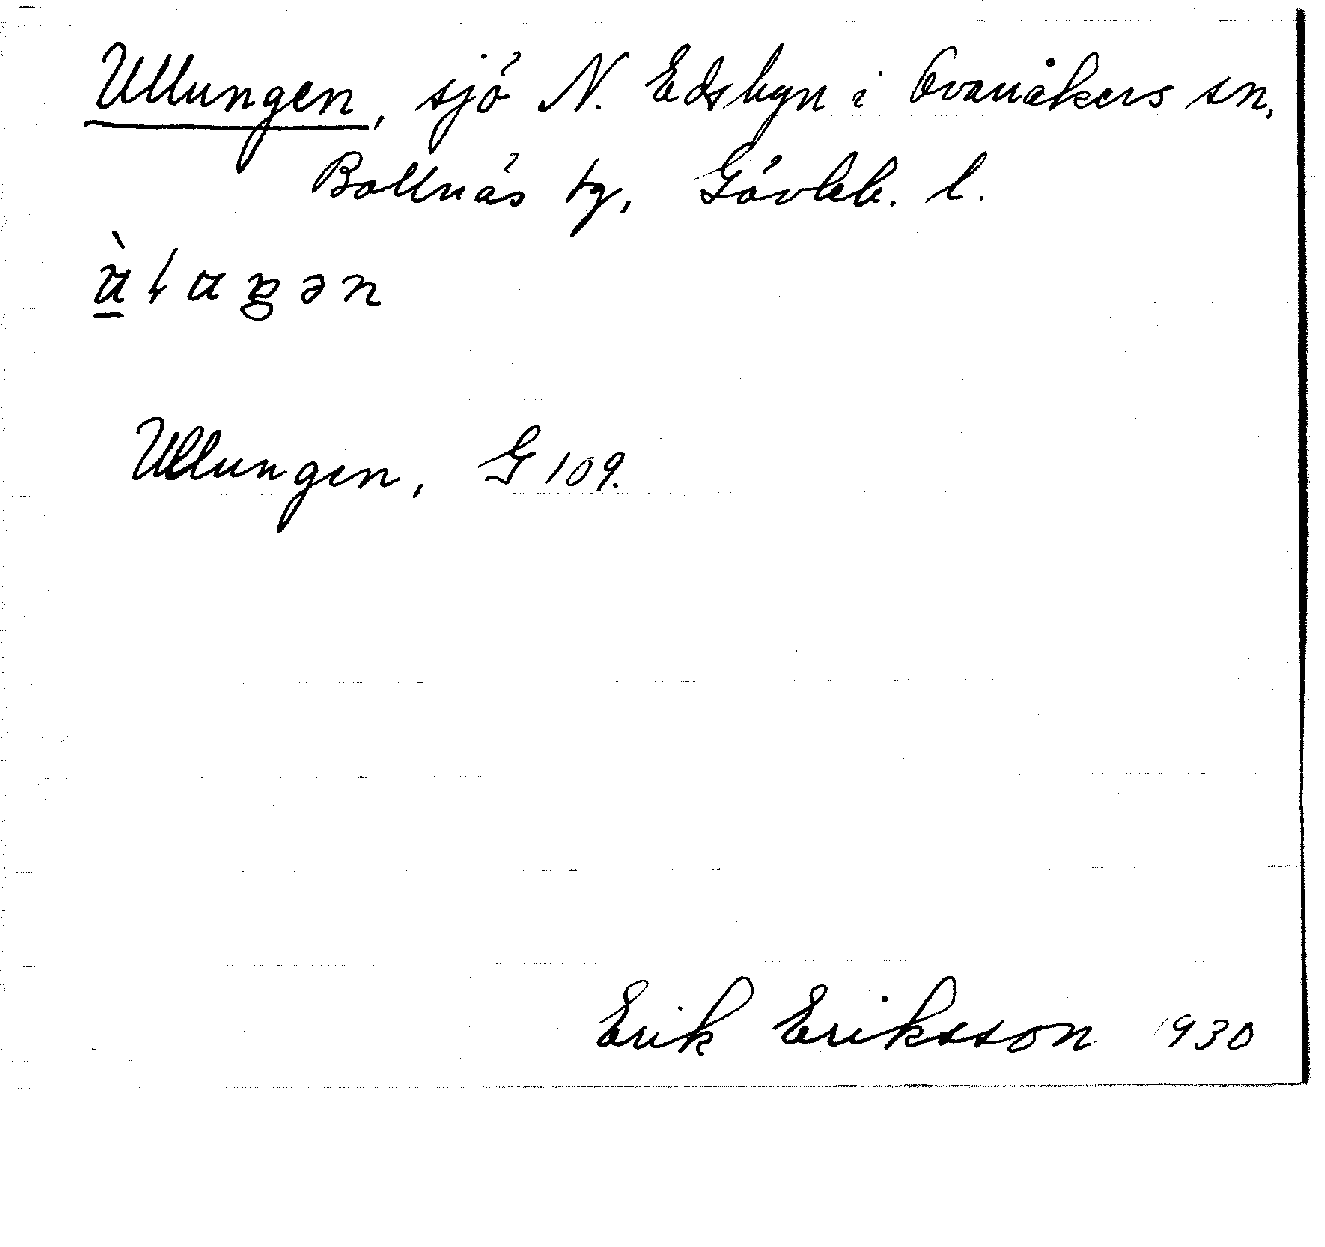 Ullungen, sjö N. Edsbyn i Ovanåkers sn,
Bollnäs tg, Gävleb. l.
Ullungen, G 109.
Erik Eriksson 1930